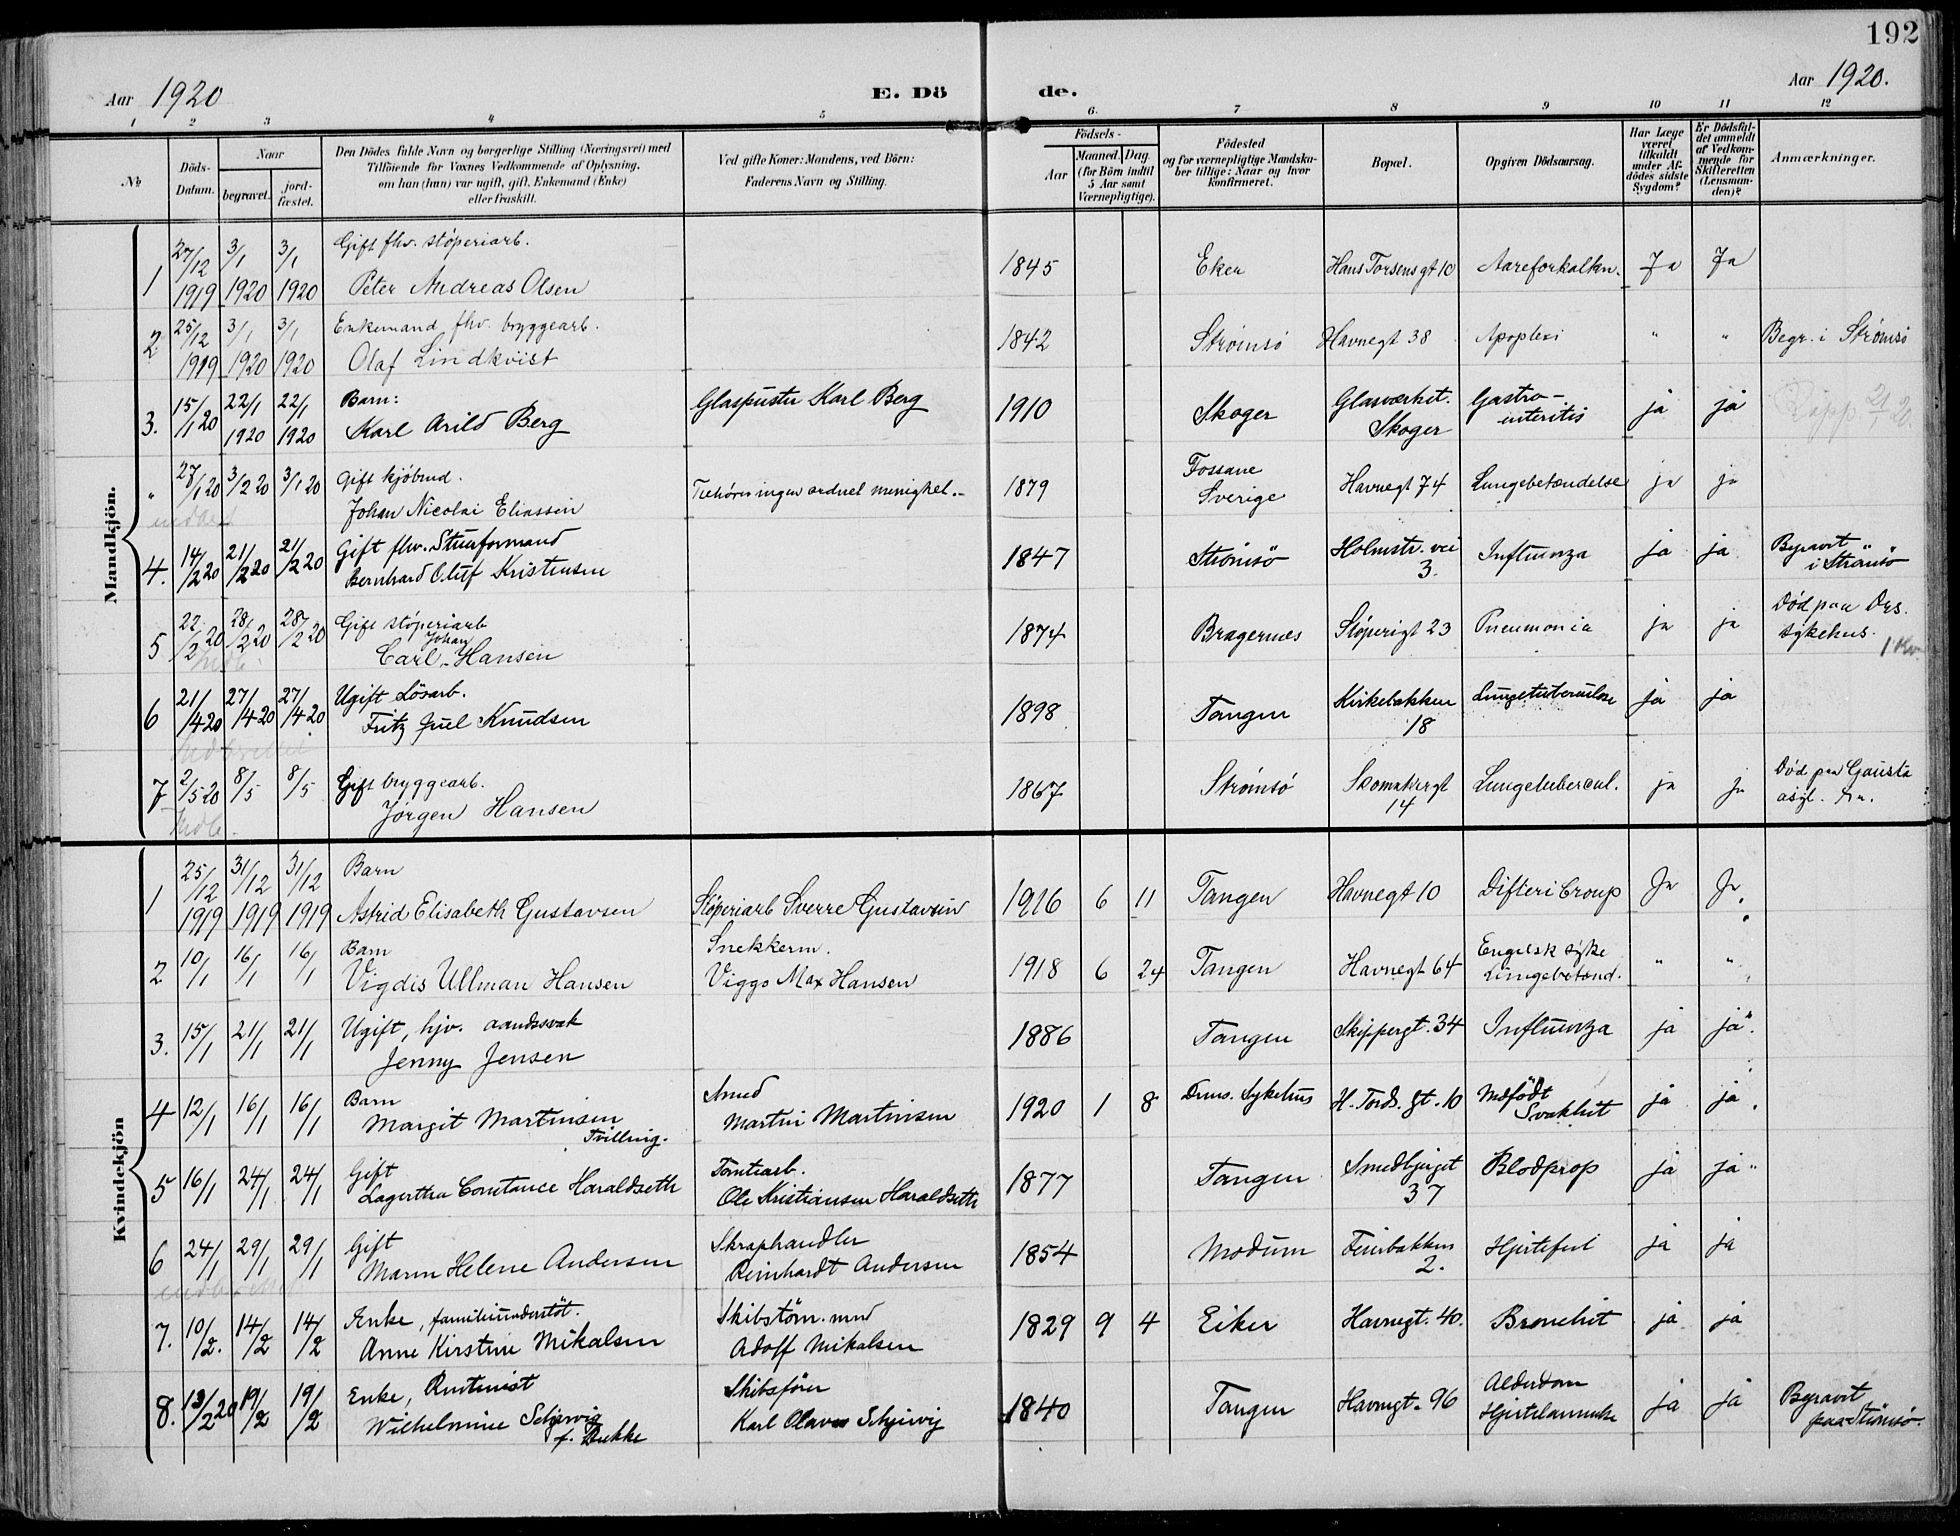 192
Aar 1920
E. Dö de.
Aar 1920.
1 2 3 4 5 6. 7 8 9 10 11 12
No
Döds-Datum.
Naar
begravet.
jord-fæstet.
Den Dödes fulde Navn og borgerlige Stilling (Næringsvei) med
Tilföiende for Voxnes Vedkommende af Oplysning,
om han (hun) var ugift, gift, Enkemand (Enke)
eller fraskilt.
Ved gifte Koner: Mandens, ved Börn:
Faderens Navn og Stilling.
Födsels-
Aar
Maaned. Dag
(for Börn indtil
5 Aar samt
Værnepligtige).
Födested
og for værnepligtige Mandska-
ber tillige: Naar og hvor
konfirmeret.
Bopæl.
Opgiven Dödsaarsag.
Har Læge
været
tilkaldt
under Af-
dödes sidste
Sygdom?
Er Dödsfal-
det anmeldt
af Vedkom-
mende for
Skifteretten
(Lensman-
den)?
Anmærkninger.
Mandkjön.
1 27/12 1919 3/1 1920 3/1 1920 Gift fhv. støperiarb.
Peter Andreas Olsen 1845 Eker Hans Torsens gt 10 Aareforkalkn. Ja Ja
2 25/12 1919 3/1 1920 3/1 1920 Enkemand fhv. bryggearb.
Olaf Lindkvist 1842 Strømsö Havnegt 38 Apoplexi " " Begr. i Strömsö
3. 15/1 20 22/1 1920 22/1 1920 Barn:
Karl Arild Berg Glaspuster Karl Berg 1910 Skoger Glasværket. Skoger Gastro-enteritis ja ja
" 27/1 20 3/2 20 3/1 20 Gift kjöbmd.
Johan Nicolai Eliassen Tilhører ingen ordnet menighet. 1879 Fossane Sverige Havnegt 74 Lungebetændelse ja ja
4. 14/2 20 21/2 20 21/2 20 Gift fhv. Stuerformand
Bernhard Oluf Kristensen 1847 Strömsö Holmstr. vei 3. Influenza ja ja Begravet i Strömsö
5 22/2 20 28/2 20 28/2 20 Gift støperiarb
Carl Johan Hansen 1874 Bragernes Støperigt 23 Pneumonia ja ja Död paa Drs. sykehus.
6 21/4 20 27/4 20 27/4 20 Ugift Lösarb.
Fritz Juel Knudsen 1898 Tangen Kirkebakken 18 Lungetuberculose ja ja
7 2/5 20 8/5 8/5 Gift bryggearb.
Jørgen Hansen 1867 Strømsó Skomakergt 14 Lungetubercul. ja ja Död paa Gausta asyl.
Kvindekjön
1 25/12 1919 31/12 1919 31/12 1919 Barn
Astrid Elisabeth Gustavsen Støperiarb Sverre Gustavsen 1916 6 11 Tangen Havnegt 10 Difteri Croup Ja Ja
2 10/1 16/1 16/1 Barn
Vigdis Ullman Hansen Snekkerm.
Viggo Max Hansen 1918 6 24 Tangen Havnegt 64 Engelsk syke Lungebetænd. " "
3. 15/1 21/1 21/1 Ugift, hjv. aandssvak
Jenny Jensen 1886 Tangen Skippergt. 34 Influenza ja ja
4 12/1 16/1 16/1 Barn
Margit Martinsen
Tvilling. Smed
Martin Martinsen 1920 1 8 Drms. Sykehus H. Tords. gt. 10 Medfödt Svakhet ja ja
5 16/1 24/1 24/1 Gift
Lagertha Constance Haraldseth Tomtearb.
Ole Kristiansen Haraldseth 1877 Tangen Smedbjerget 37 Blodprop ja ja
6 24/1 29/1 29/1 Gift
Maren Helene Andersen Skraphandler
Reinhardt Andersen 1854 Modum Feierbakken 2. Hjertefeil ja ja
7. 10/2. 14/2 14/2 Enke, familieunderstöt.
Anne Kirstine Mikalsen Skibstöm.md
Adolf Mikalsen 1829 9 4 Eiker Havnegt. 40. Bronchit ja ja
8. 13/2 20 19/2 19/2 Enke, Rentenist
Wilhelmine Schjervig
f. Bukke Skibsförer
Karl Olaves Schjervig 1840 Tangen Havnegt. 96 Alderdom Hjertelammelse ja ja Begravet paa Strömsö.